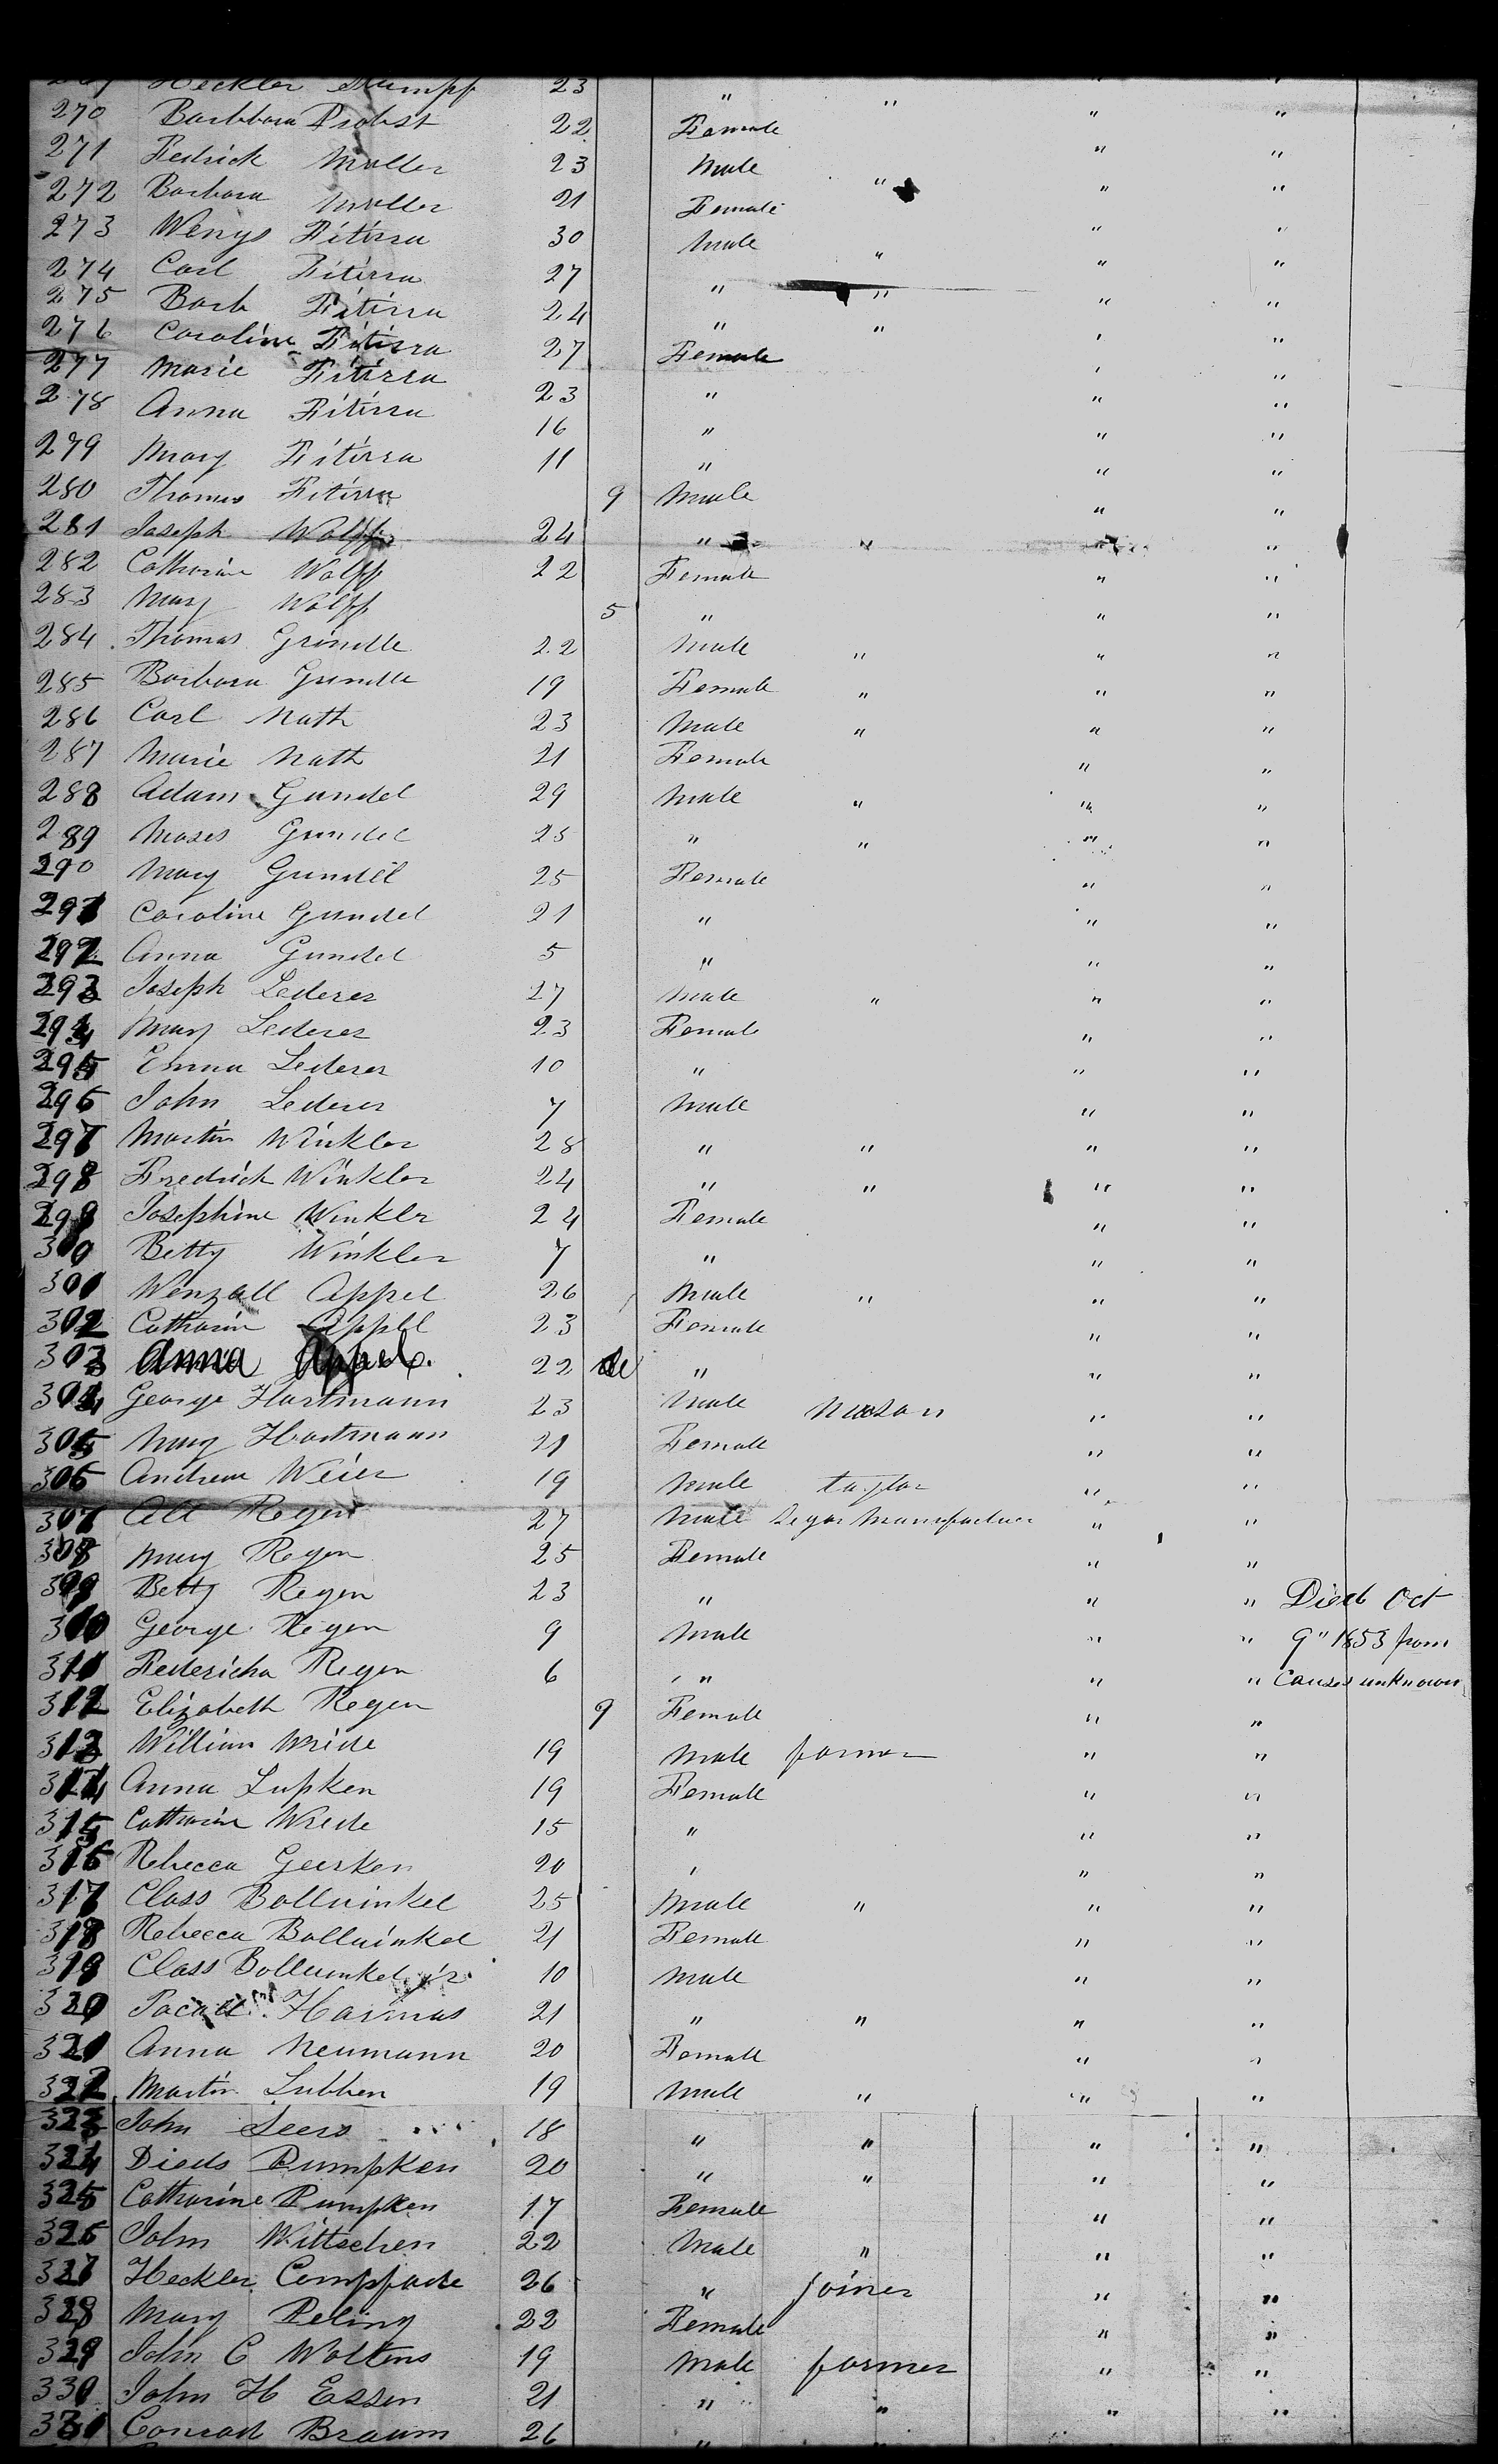 Heckler Stumpf 23 " " " "
270 Barbbara Probst 22 Female " "
271 Fedrick Muller 23 Male " " "
272 Barbara Muller 21 Female " "
273 Wenys Fitirra 30 Male " " "
274 Carl Fitirra 27 " " " "
275 Barb Fitirra 24 " " " "
276 Caroline Fitirra 27 Female " "
277 Marie Fitirra 23 " " "
278 Anna Fitirra 16 " " "
279 Mary Fitirra 11 " " "
280 Thomas Fitirra 9 Male " "
281 Joseph Wolff 24 " " " "
282 Catharine Wolff 22 Female " "
283 Mary Wolff 5 " " "
284 Thomas Grindle 22 Male " " "
285 Barbara Grundle 19 Female " " "
286 Carl Nath 23 Male " " "
287 Marie Nath 21 Female " "
288 Adam Gundel 29 Male " " "
289 Moses Grundel 25 " " " "
290 Mary Grundel 25 Female " "
291 Caroline Gundel 21 " " "
292 Anna Gundel 5 " " "
293 Joseph Lederer 27 Male " " "
294 Mary Lederer 23 Female " "
295 Emma Lederer 10 " " "
296 John Lederer 7 Male " "
297 Martin Winkler 28 " " " "
298 Fredrick Winkler 24 " " " "
299 Josephine Winkler 24 Female " "
300 Betty Winkler 7 " " "
301 Wenzall Appel 26 Male " " "
302 Catharin Appel 23 Female " "
303 Anna Appel. 22 " " "
304 George Hartmann 23 Male Mason " "
305 Mary Hartmann 21 Female " "
306 Andrew Weier 19 Male taylor " "
307 Regen 27 Male Segar Manufacturer " "
308 Mary Regen 25 Female " "
309 Betty Regen 23 " " " Died Oct
310 George Regen 9 Male " " 9" 1853 from
311 Federicha Regen 6 " " " Causes unknown
312 Elizabeth Regen 9 Female " "
313 William Wride 19 Male farmer " "
314 Anna Lupken 19 Female " "
315 Catharine Wrede 15 " " "
316 Rebecca Geerken 20 " " "
317 Class Bollwinkel 25 Male " " "
318 Rebecca Bollwinkel 21 Female " "
319 Class Bollwinkel jr 10 Male " "
320 Harmas 21 " " " "
321 Anna Neumann 20 Female " "
322 Martin Lubben 19 Male " " "
323 John Seers 18 " " " "
324 Dieds Dumpken 20 " " " "
325 Catharine Dumpken 17 Female " "
326 John Wittschen 22 Male " " "
327 Heckler Compfade 26 " joiner " "
328 Mary Peling 22 Female " "
329 John C Woltens 19 Male farmer " "
330 John H Essen 21 " " " "
331 Conrad Braum 26 "